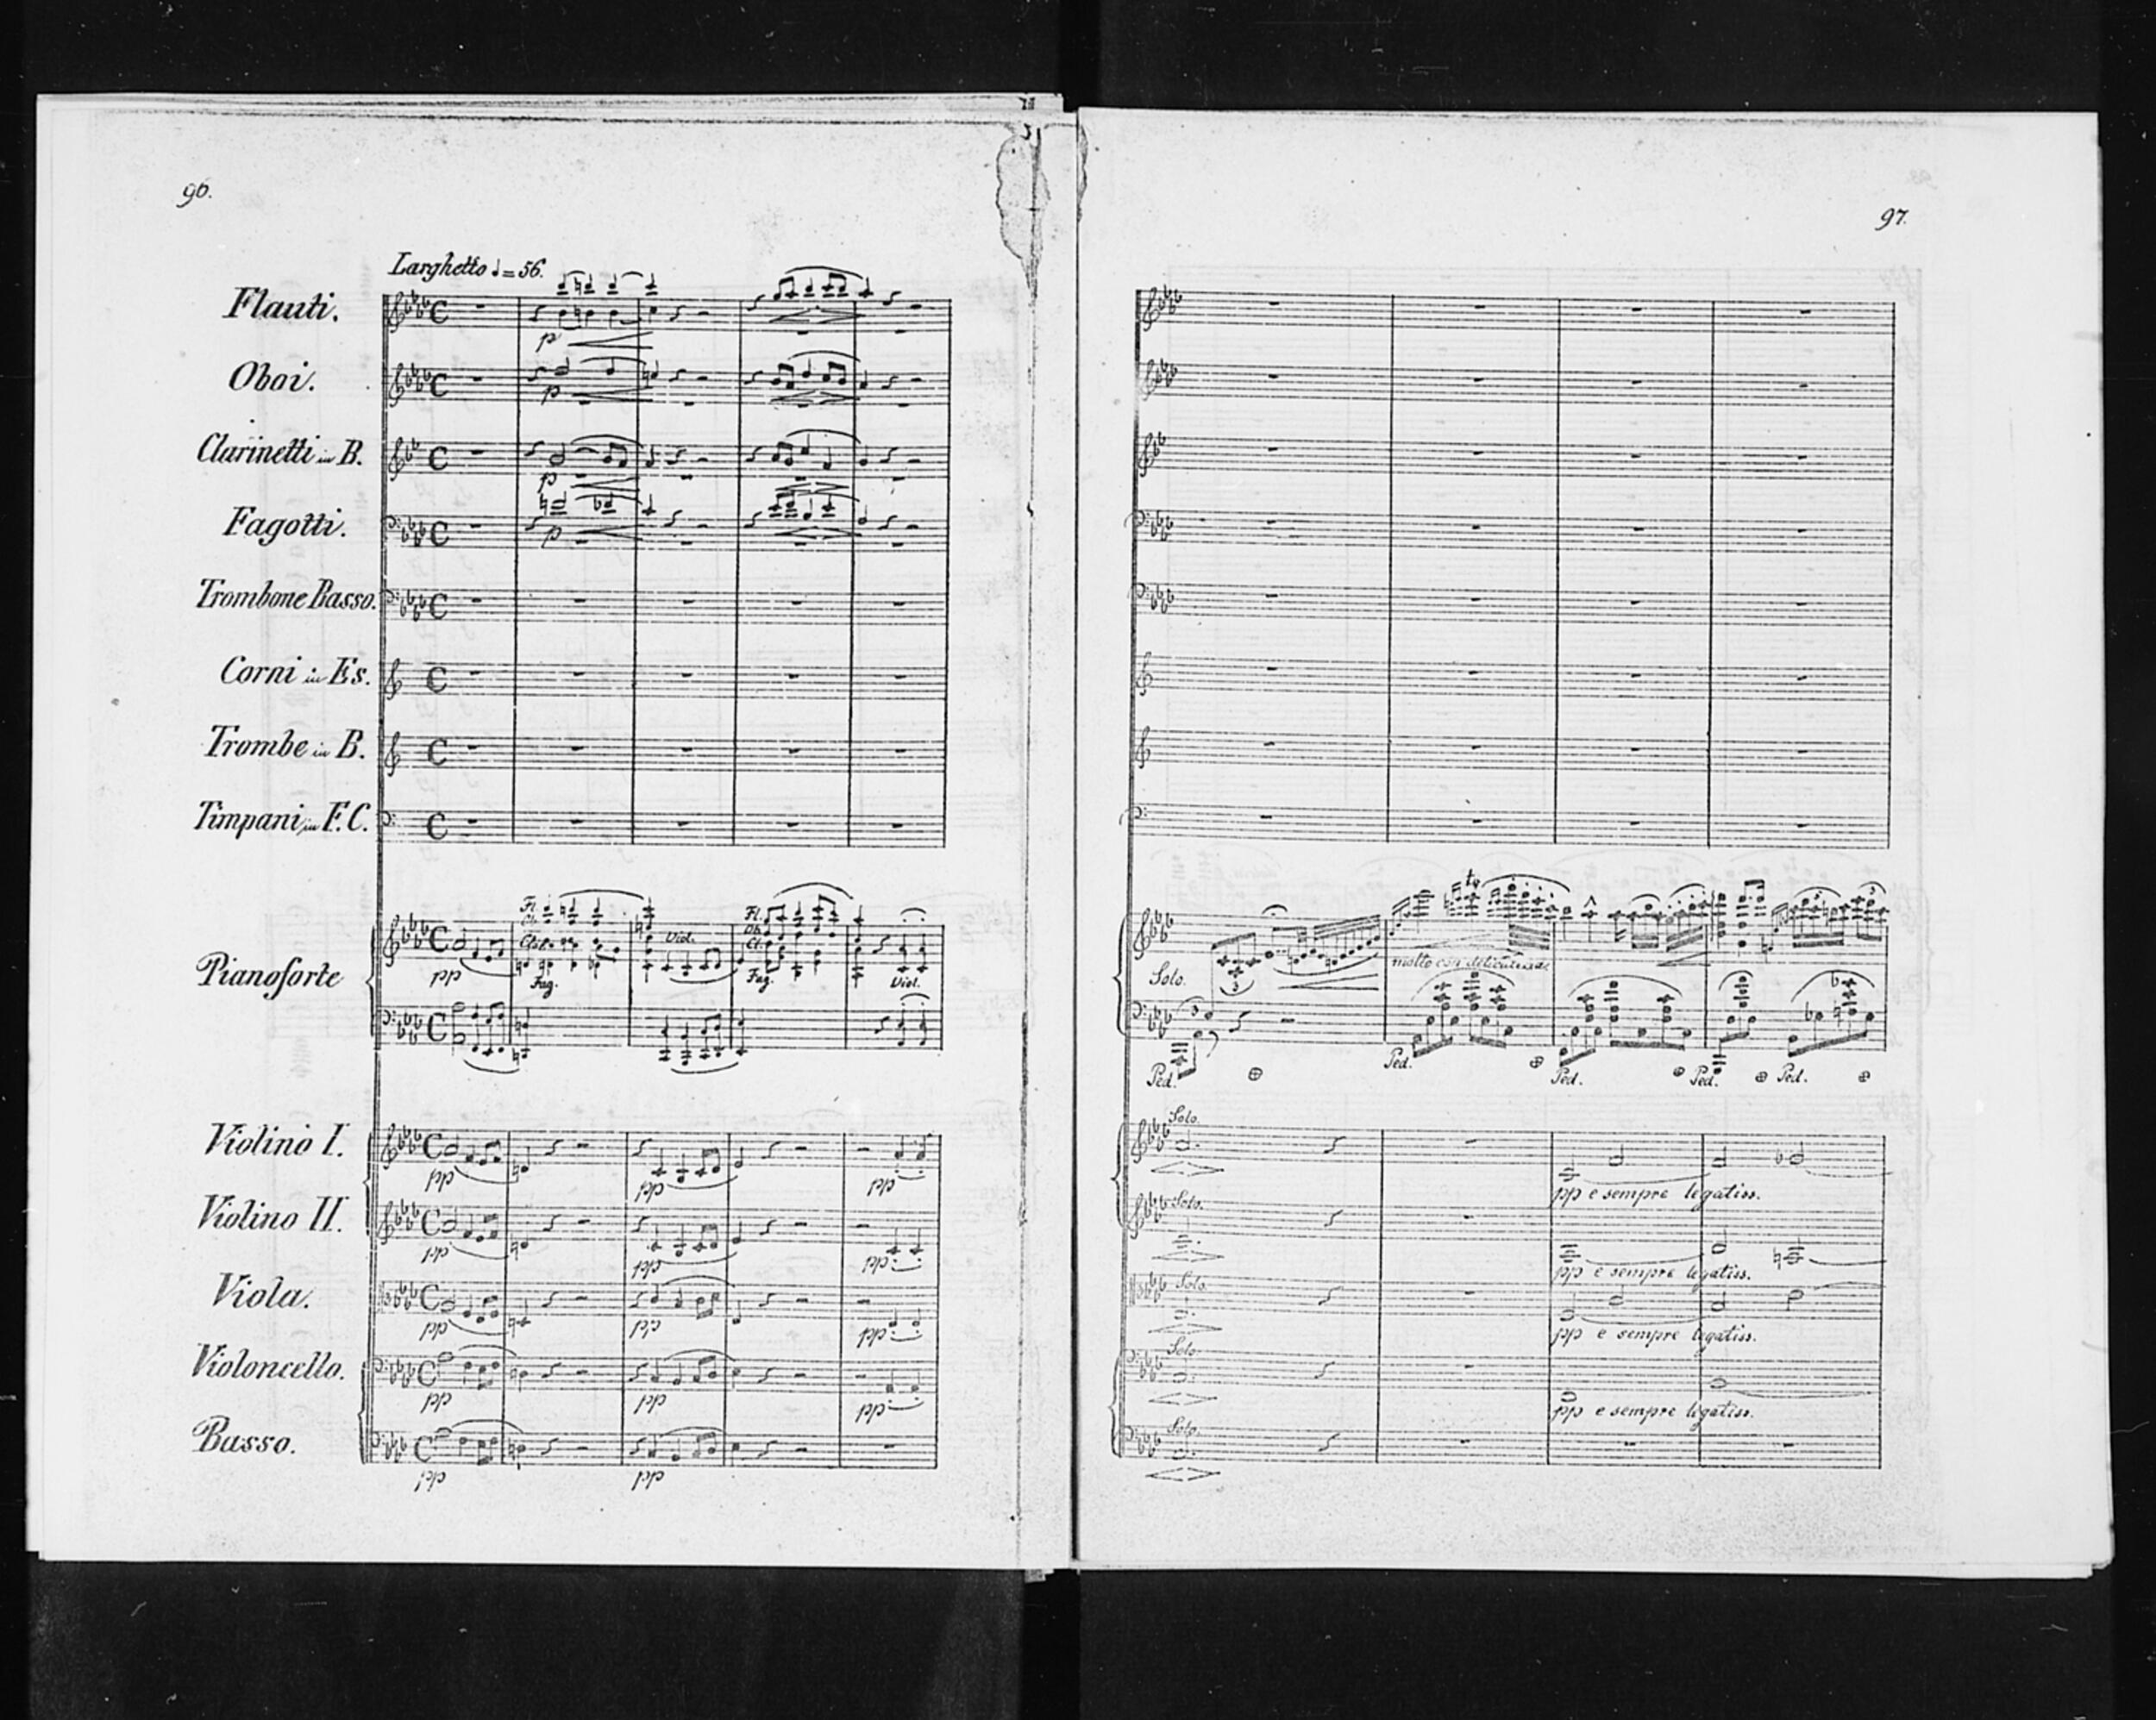 96.
Larghetto ♩=56.
Flauti.
p
Oboi.
p
Clarinetti in B.
p
Fagotti.
p
Trombone Basso.
Corni in Es.
Trombe in B.
Timpani in F. C.
Fl. Fl.
Ob. Ob.
Clar. Viol. Cl.
Pianoforte pp Fag. Fag. Viol.
Violino I.
pp pp pp
Violino II.
pp pp pp
Viola.
pp pp pp
Violoncello.
pp pp pp
Basso.
pp pp
97.
tr
Solo. molto con delicatezza
3 3
3
Ped. Ped. Ped. Ped. Ped.
Solo.
pp e sempre legatiss.
Solo.
pp e sempre legatiss.
Solo.
pp e sempre legatiss.
Solo.
pp e sempre legatiss.
Solo.